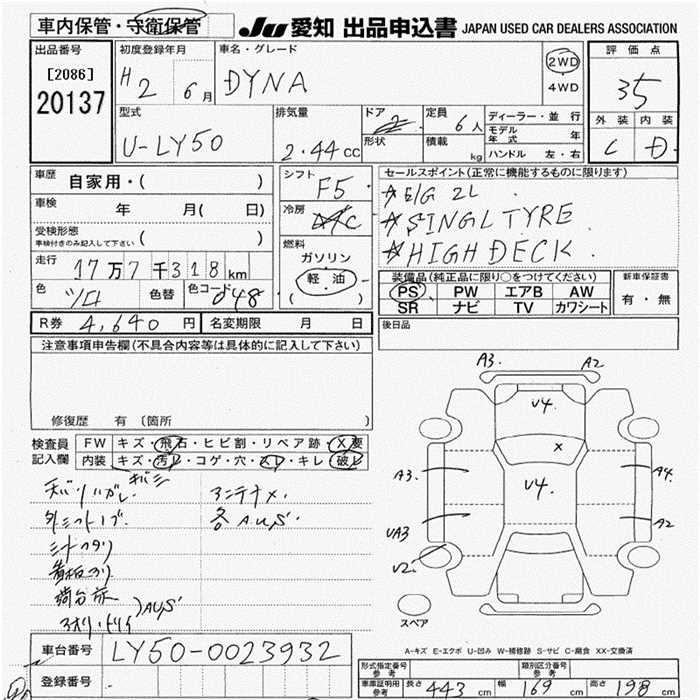 車内保管・守衛保管
JU 愛知 出品申込書 JAPAN USED CAR DEALERS ASSOCIATION
出品番号
[2086]
20137
初度登録年月
H 2 6月
車名・グレード
DYNA
2WD
4WD
評価点
35
外装 内装
C D
型式
U-LY50
排気量
2.44cc
ドア
2
形状
定員
6人
積載
kg
ディーラー・並行
モデル年式 年
ハンドル 左・右
車歴
自家用・( )
車検
年 月( 日)
受検形態
車検付きのみ記入して下さい
( )
走行
17万7千318km
色
色替
色コード
048
シフト
F5
冷房
AC
燃料
ガソリン
軽・油
( )
セールスポイント(正常に機能するものに限ります)
☆E/G 2L
☆SINGLTYRE
☆HIGH DECK.
装備品(純正品に限り○をつけてください)
PS PW エアB AW
SR ナビ TV カワシート
新車保証書
有・無
後日品
R券 4,640 円
名変期限 月 日
注意事項申告欄(不具合内容等は具体的に記入して下さい)
修復歴 有 〔箇所 〕
検査員
記入欄
FW キズ・飛石・ヒビ割・リペア跡・X要
内装 キズ・汚レ・コゲ・穴・スレ・キレ・破レ
アンテナメ.
各AUS.
AUS
A3 A2
V4
X
A3 A4
V4
UA3 A2
V2
スペア
A-キズ E-エクボ U-凹み W-補修跡 S-サビ C-腐食 XX-交換済
車台番号
LY50-0023932
登録番号
形式指定番号
参考
類別区分番号
参考
車庫証明用
参考
長さ 443 cm 幅 169 cm 高さ 198 cm